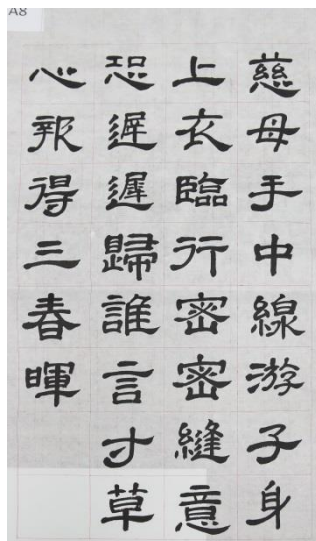 A8
慈母手中線游子身
上衣臨行密密縫意
恐遲遲歸誰言寸草
心報得三春暉